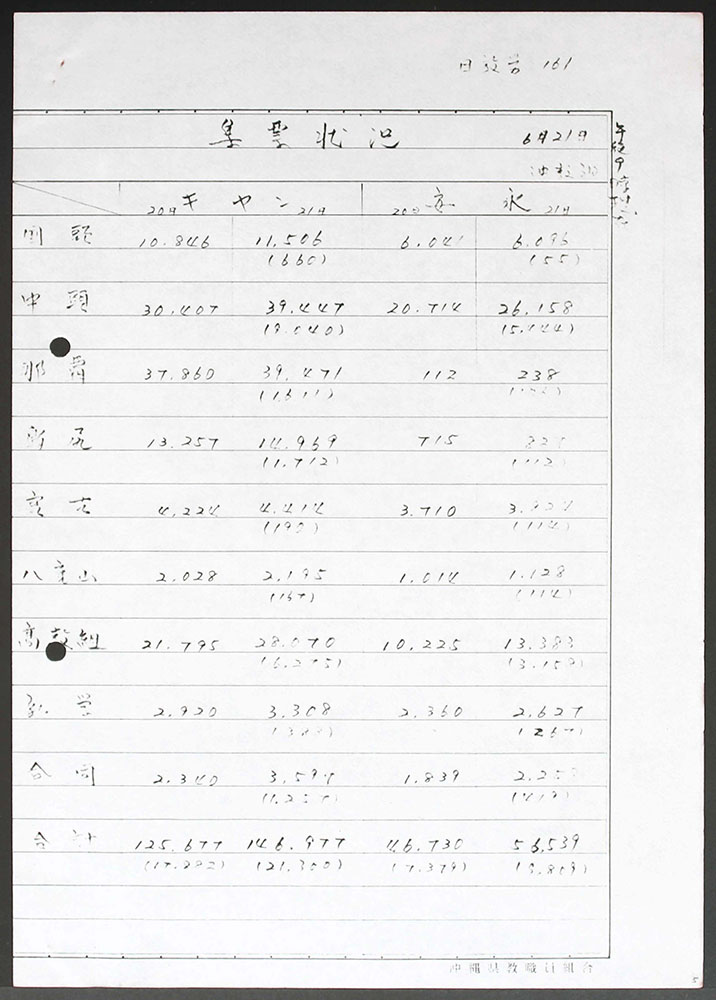 日教官 161
集票状況 6月21日
沖教組
午後9時現在
20日 キヤン 21日 20日 安永 21日
国頭 10.846 11.506 6.041 6.096
(660) (55)
中頭 30.407 39.447 20.714 26.158
(9.040) (5.444)
那覇 37.860 39.471 112 238
(1611)
島尻 13.257 14.969 715
(1.712) (112)
宮古 4.224 4.414 3.710
(190) (114)
八重山 2.028 2.195 1.014 1.128
(167) (114)
高教組 21.795 28.070 10.225 13.383
(6.275) (3.158)
私学 2.920 3.308 2.360 2.627
(388) (267)
合同 2.340 3.597 1.839
(1.257)
合計 125.677 146.977 46.730 56.539
(21.300) (7.379) (9.809)
沖縄県教職員組合